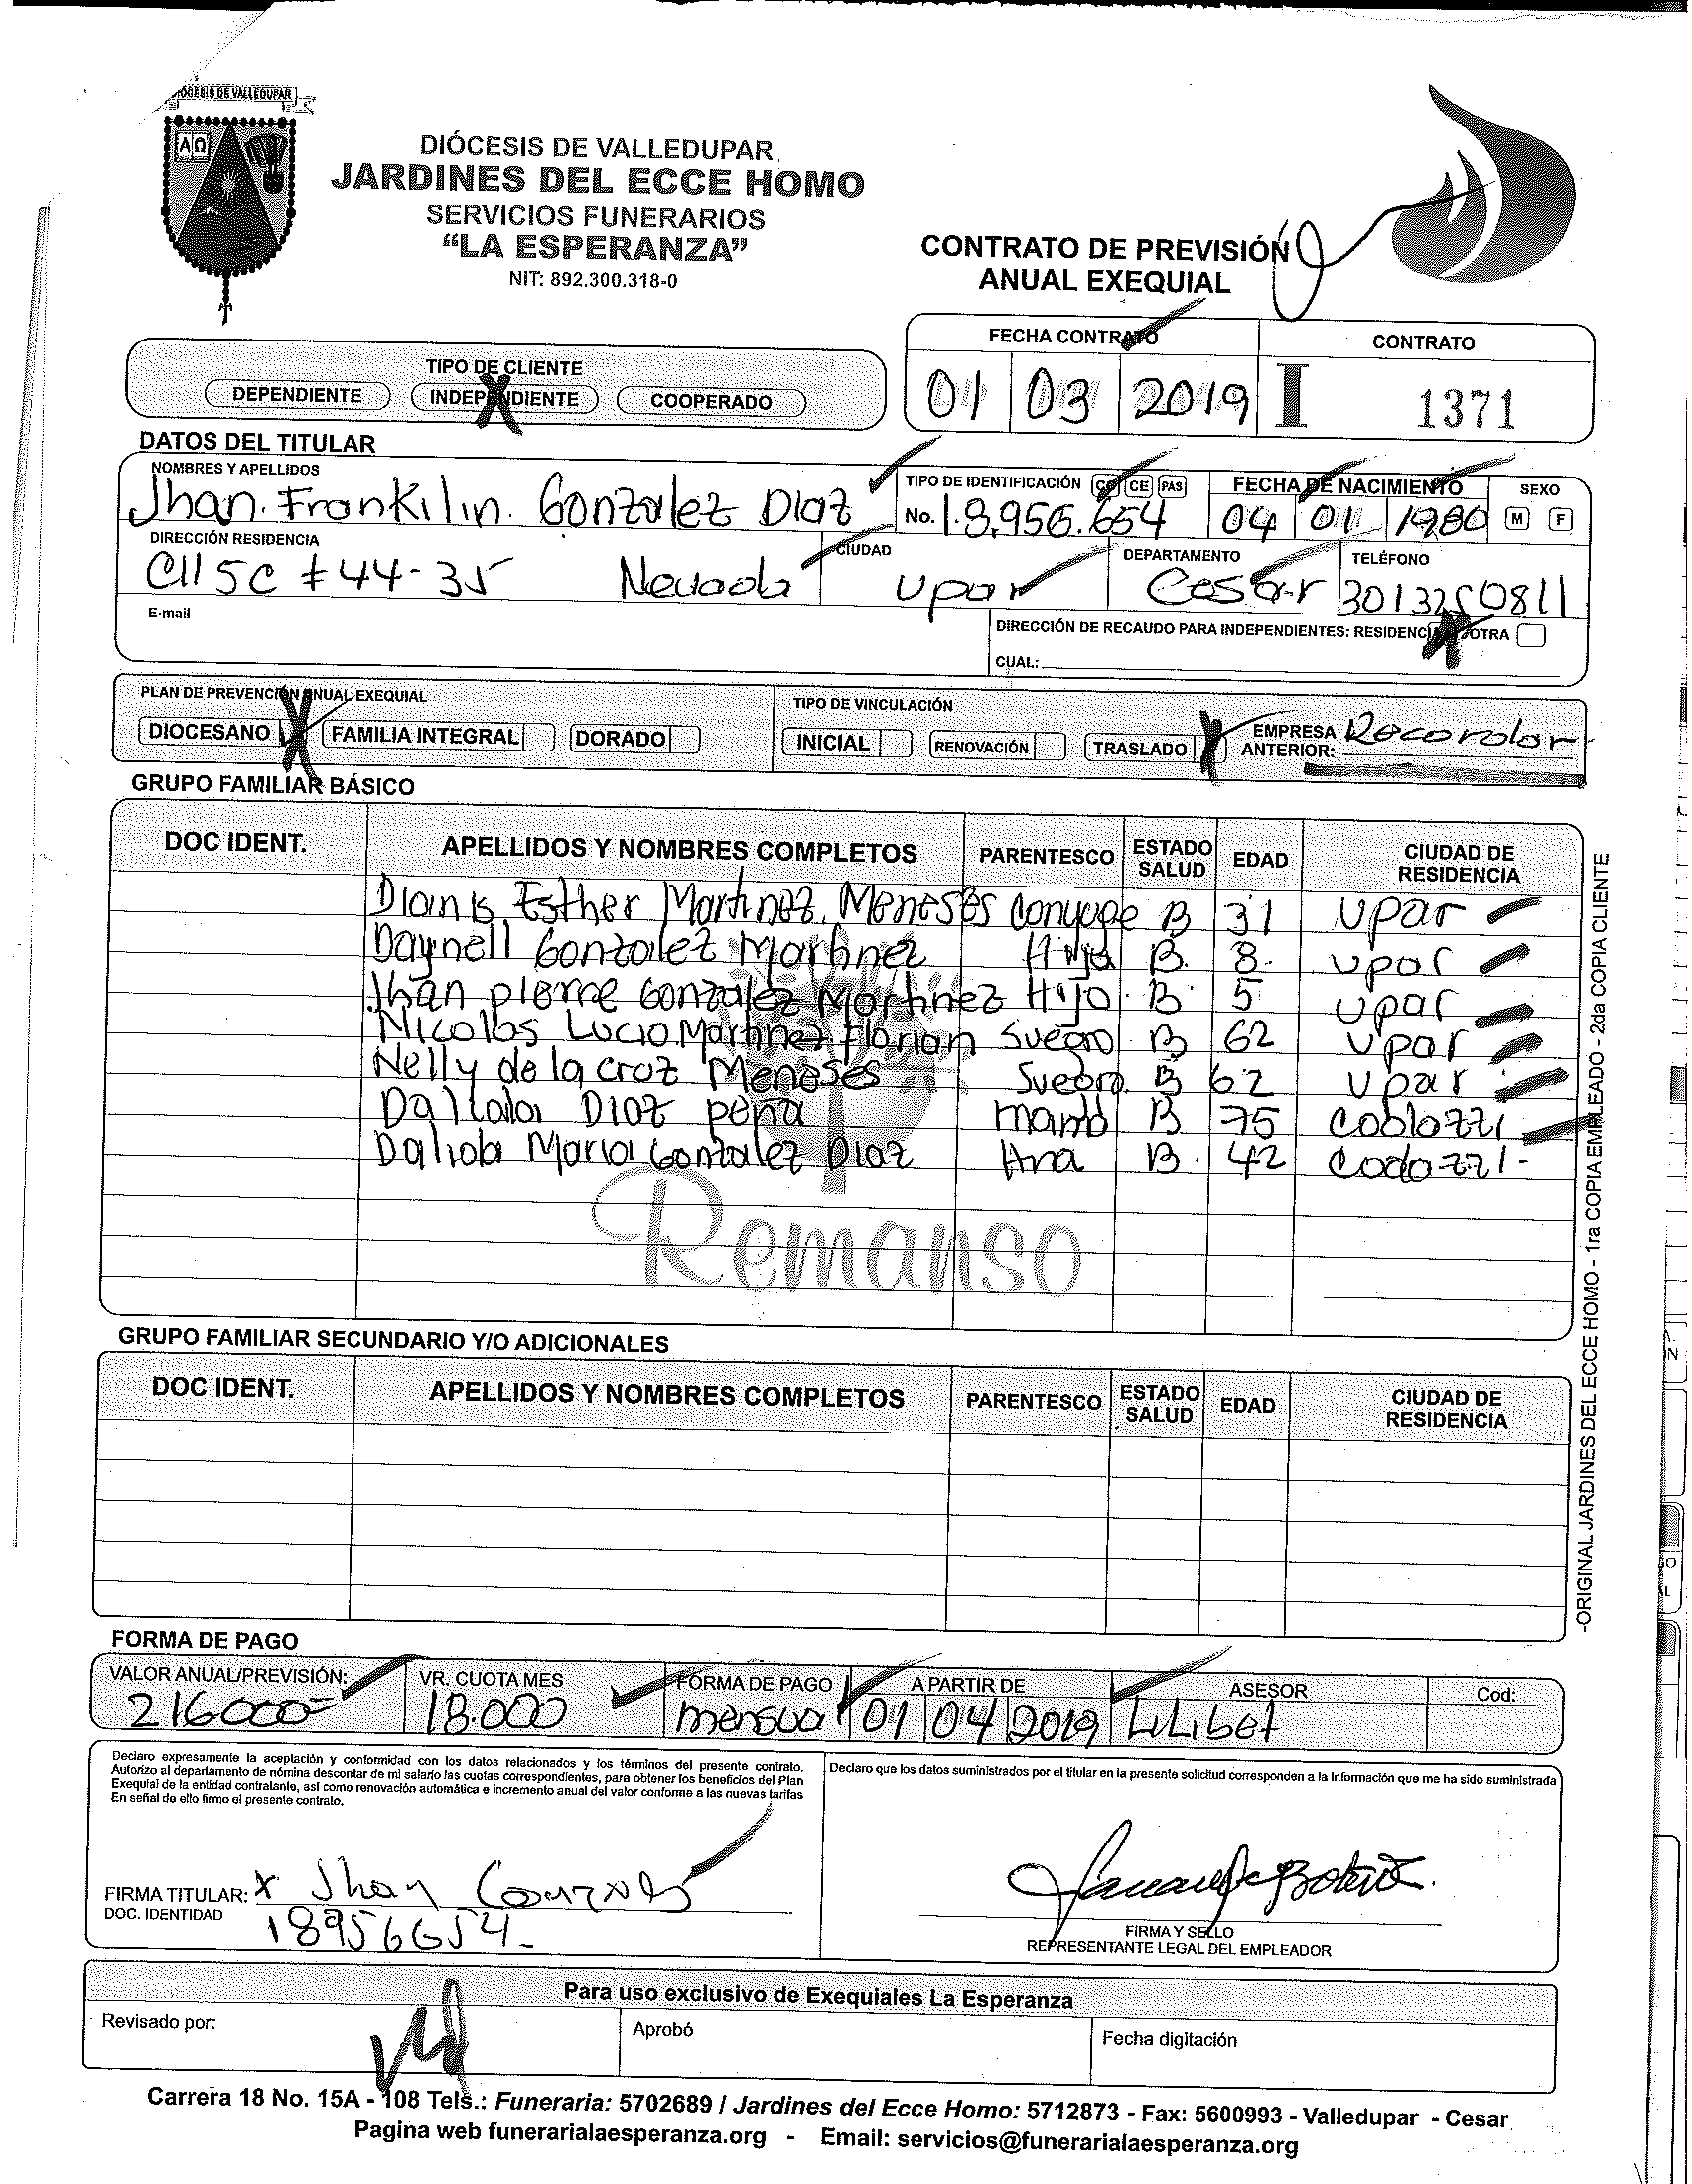 DIÓCESIS DE VALLEDUPAR
ΑΩ
DIÓCESIS DE VALLEDUPAR
JARDINES DEL ECCE HOMO
SERVICIOS FUNERARIOS
“LA ESPERANZA”
NIT: 892.300.318-0
CONTRATO DE PREVISIÓN
ANUAL EXEQUIAL
FECHA CONTRATO CONTRATO
01 03 2019 I 1371
TIPO DE CLIENTE
DEPENDIENTE INDEPENDIENTE X COOPERADO
DATOS DEL TITULAR
NOMBRES Y APELLIDOS TIPO DE IDENTIFICACIÓN CC CE PAS FECHA DE NACIMIENTO SEXO
Jhan. Frankilin. Gonzalez Diaz No. 18.956.654 04 01 1980 M F
DIRECCIÓN RESIDENCIA CIUDAD DEPARTAMENTO TELÉFONO
Cll 5C # 44-35 Nevada Upar Cesar 3013250811
E-mail DIRECCIÓN DE RECAUDO PARA INDEPENDIENTES: RESIDENCIA X OTRA
CUAL:
PLAN DE PREVENCIÓN ANUAL EXEQUIAL TIPO DE VINCULACIÓN
DIOCESANO X FAMILIA INTEGRAL DORADO INICIAL RENOVACIÓN TRASLADO X EMPRESA ANTERIOR: Recordar
GRUPO FAMILIAR BÁSICO
DOC IDENT. APELLIDOS Y NOMBRES COMPLETOS PARENTESCO ESTADO SALUD EDAD CIUDAD DE RESIDENCIA
Dianis Esther Martinez Meneses Conyuge B 31 Upar
Daynell Gonzalez Martinez Hija B. 8. upar
Jhan pierre Gonzalez Martinez Hijo. B 5 upar
Nicolas Lucio Martinez Florian Suegro B 62 Upar
Nelly de la cruz Meneses Suegra. B 62 Upar
Dalila Diaz peña mamá B 75 Codazzi
Maria Gonzalez Diaz Hna B. 42 Codazzi-
Remanso
GRUPO FAMILIAR SECUNDARIO Y/O ADICIONALES
DOC IDENT. APELLIDOS Y NOMBRES COMPLETOS PARENTESCO ESTADO SALUD EDAD CIUDAD DE RESIDENCIA
-ORIGINAL JARDINES DEL ECCE HOMO - 1ra COPIA EMPLEADO - 2da COPIA CLIENTE
FORMA DE PAGO
VALOR ANUAL/PREVISIÓN: VR. CUOTA MES FORMA DE PAGO A PARTIR DE ASESOR Cod:
216000- 18.000 mensual 01 04 2019 Lilibet
Declaro expresamente la aceptación y conformidad con los datos relacionados y los términos del presente contrato.
Autorizo al departamento de nómina descontar de mi salario las cuotas correspondientes, para obtener los beneficios del Plan
Exequial de la entidad contralante, así como renovación automática e incremento anual del valor conforme a las nuevas tarifas
En señal de ello firmo el presente contrato.
Declaro que los datos suministrados por el titular en la presente solicitud corresponden a la Información que me ha sido suministrada
FIRMA TITULAR: x Jhan Gonzalez
DOC. IDENTIDAD 18956654-
FIRMA Y SELLO
REPRESENTANTE LEGAL DEL EMPLEADOR
Para uso exclusivo de Exequiales La Esperanza
Revisado por: Aprobó Fecha digitación
Carrera 18 No. 15A - 108 Tels.: Funeraria: 5702689 / Jardines del Ecce Homo: 5712873 - Fax: 5600993 - Valledupar - Cesar
Pagina web funerarialaesperanza.org - Email: servicios@funerarialaesperanza.org